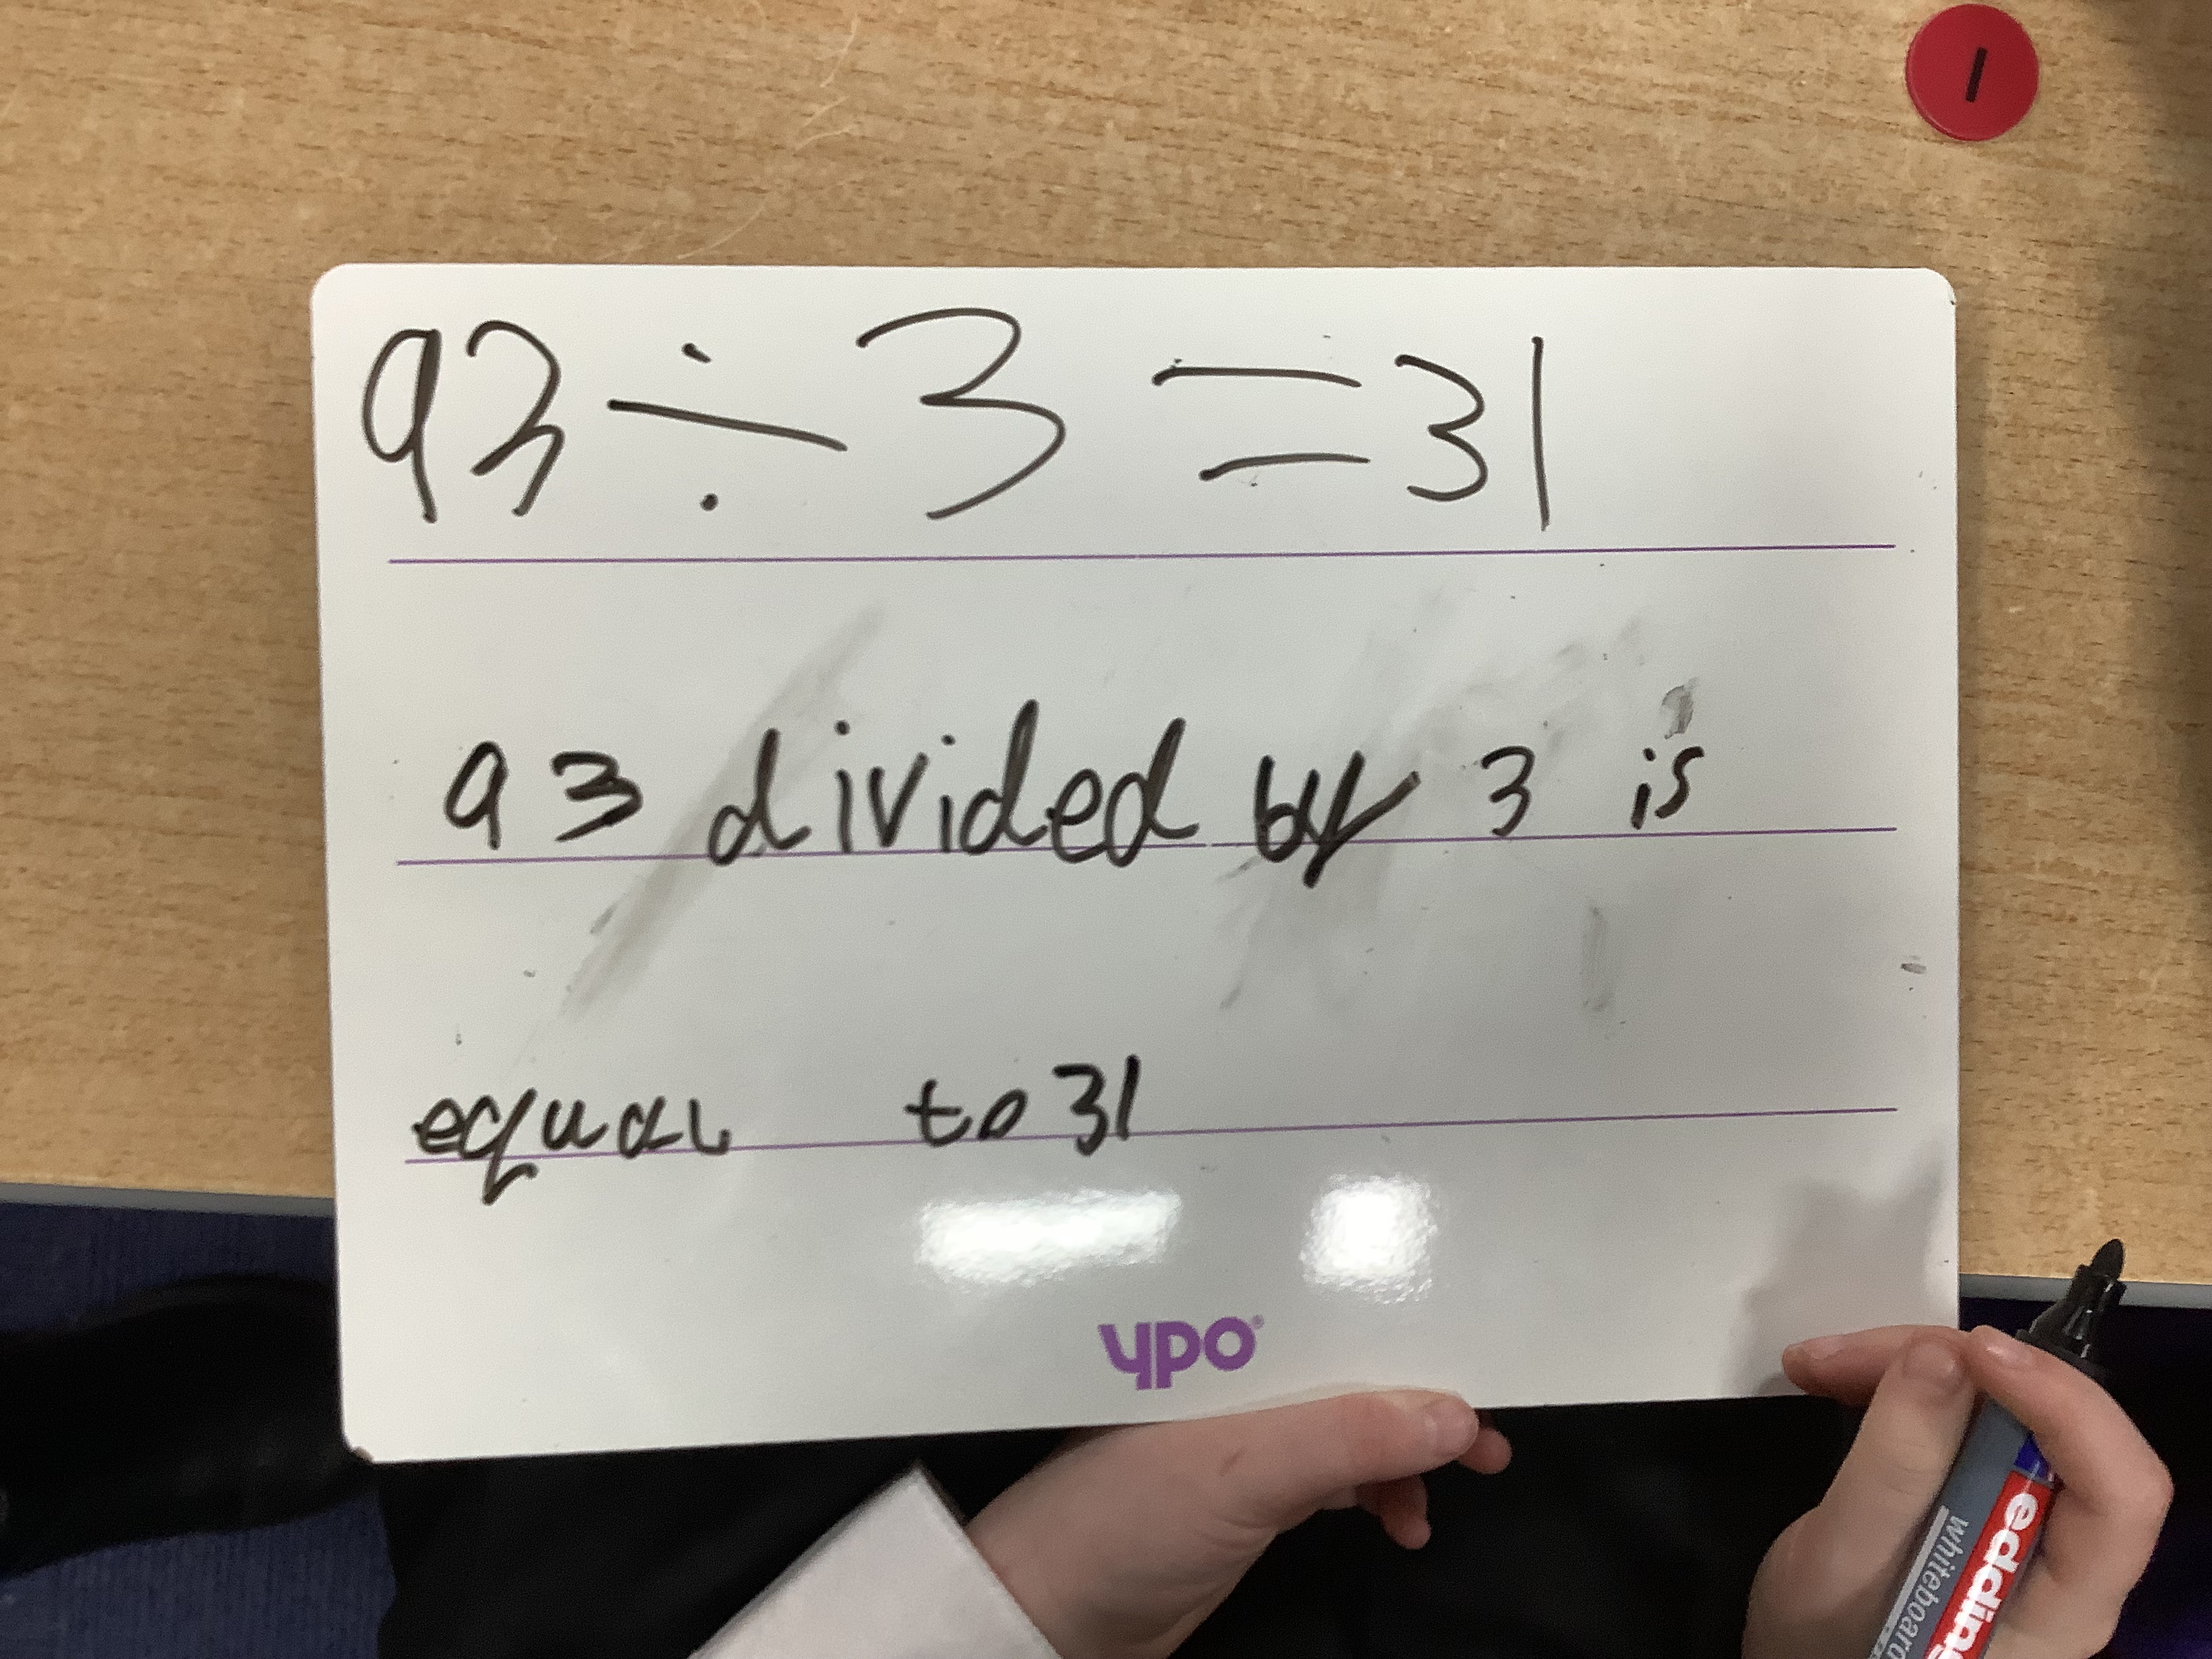 1
93 ÷ 3 = 31
93 divided by 3 is
equal to 31
ypo
edding
whiteboard